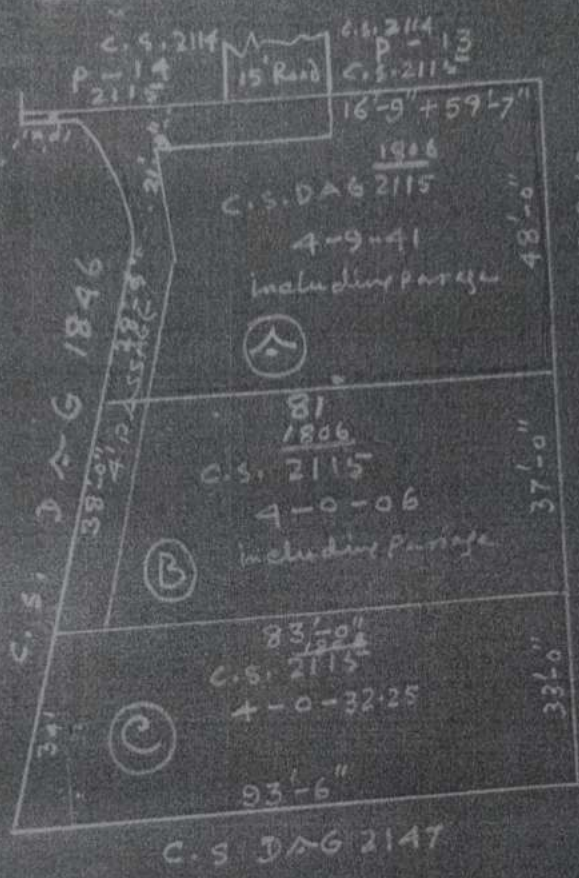 C.S. 2114
P-14
2115
15' Road
C.S. 2114
P-13
C.S. 2115
16'-9" + 59'-7"
1806
C.S. DAG 2115
4-9-41
including passage
A
48'-0"
C.S. DAG 1846
38'-9"
4' PASSAGE
81
1806
C.S. 2115
4-0-06
including passage
B
37'-0"
38'-0"
83'-0"
C.S. 2115
4-0-32.25
C
33'-0"
34'
93'-6"
C.S DAG 2147